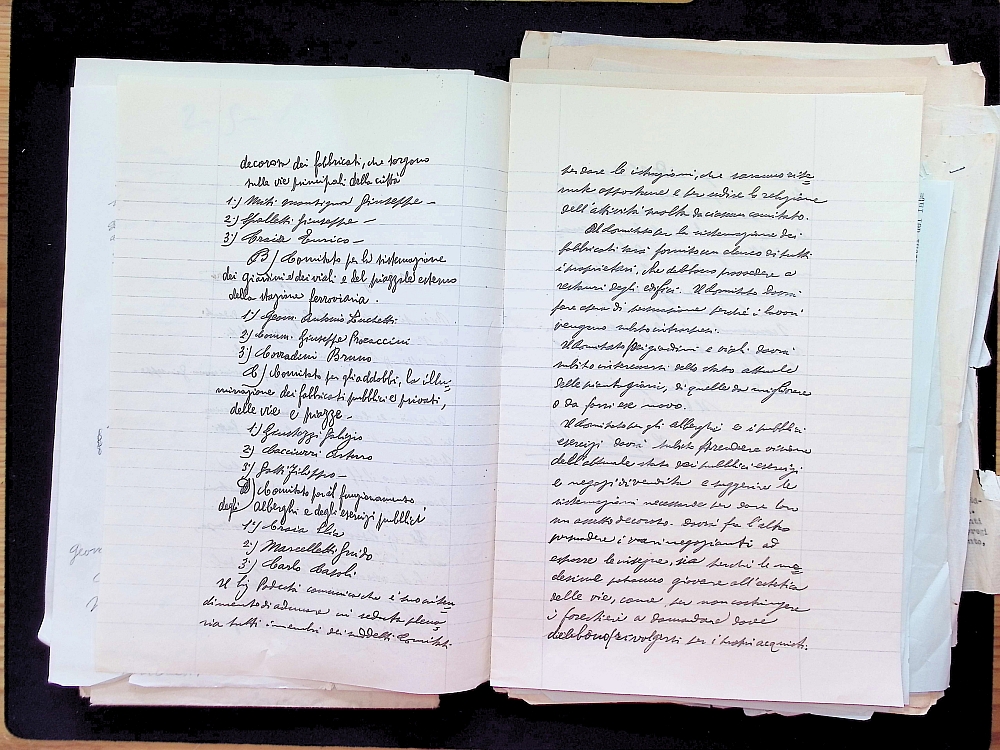 decorosa dei fabbricati, che sorgono
sulle vie principali della città
1°) Miti monsignor Giuseppe –
2°) Galletti Giuseppe –
3°) Craia Enrico –
B) Comitato per la sistemazione
dei giardini e dei viali e del piazzale esterno
della stazione ferroviaria.
1°) Geom. Antonio Luchetti
2°) Comm. Giuseppe Procaccini
3°) Corradini Bruno
C) Comitato per gli addobbi, la illu-
minazione dei fabbricati pubblici e privati,
delle vie e piazze –
1°) Giustozzi Eligio
2°) Cacciurri Arturo
3°) Gatti Filippo –
D) Comitato per il funzionamento
degli Alberghi e degli esercizi pubblici
1°) Craia Elia
2°) Marcelletti Guido
3°) Carlo Casoli
Il Sig Podestà comunica che è suo inten-
dimento di adunare in seduta plena-
ria tutti i membri dei suddetti Comitati
per dare le istruzioni, che saranno rite-
nute opportune e per udire la relazione
dell'attività svolta da ciascun comitato.
Al Comitato per la sistemazione dei
fabbricati sarà fornito un elenco di tutti
i proprietari, che debbono provvedere a
restauri degli edifici. Il Comitato dovrà
fare opera di persuasione perché i lavori
vengano subito intrapresi.
Il Comitato pei giardini e viali dovrà
subito interessarsi dello stato attuale
delle piantagioni, di quelle da migliorare
o da farsi ex novo.
Il Comitato per gli alberghi e i pubblici
esercizi dovrà subito prendere visione
dell'attuale stato dei pubblici esercizi
e negozi di vendita e suggerire le
sistemazioni necessarie per dare loro
un assetto decoroso. Dovrà fra l'altro
persuadere i vari negozianti ad
esporre le insegne, sia perché le me-
desime potranno giovare all'estetica
delle vie, come per non costringere
i forestieri a domandare dove
debbono rivolgersi per i propri acquisti.